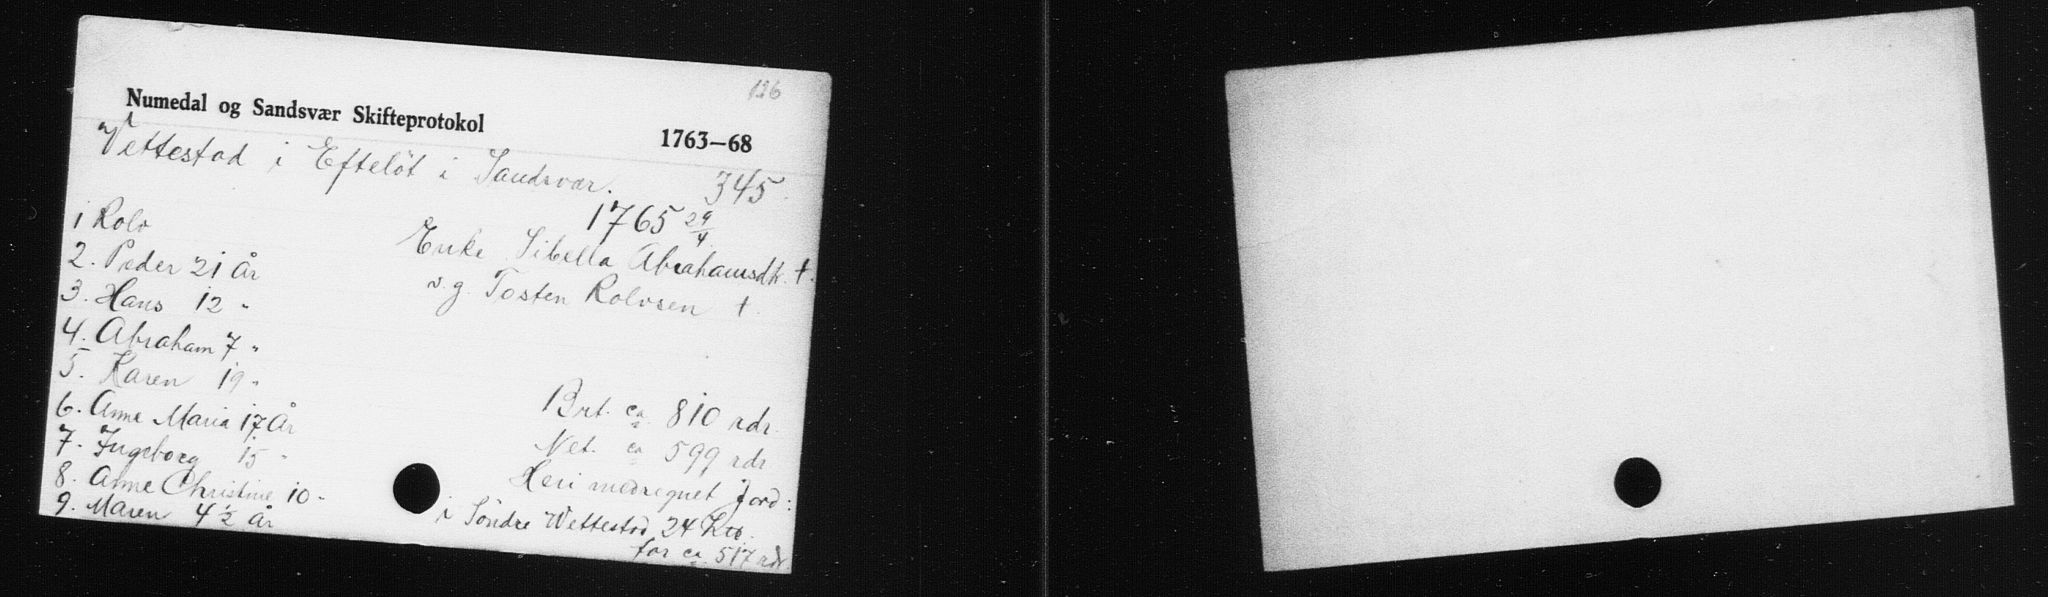 126
Numedal og Sandsvær Skifteprotokol
1763—68
Vettestad i Efteløt i Sandsvær.
345.
1765 29/4
Enke Sibella Abrahamsdtr. †.
v. g. Tosten Rolvsen †.
1 Rolv
2. Peder 21 år
3. Hans 12 "
4. Abraham 7 "
5. Karen 19 "
6. Anne Maria 17 År
7. Ingeborg 15 "
8. Anne Christine 10 "
9. Maren 4 1/2 år
Brt. ca. 810 rdr.
Net. ca 599 rdr
Heri medregnet Jord:
i Söndre Wettestad 24 Ltb.
for ca. 517 rdr